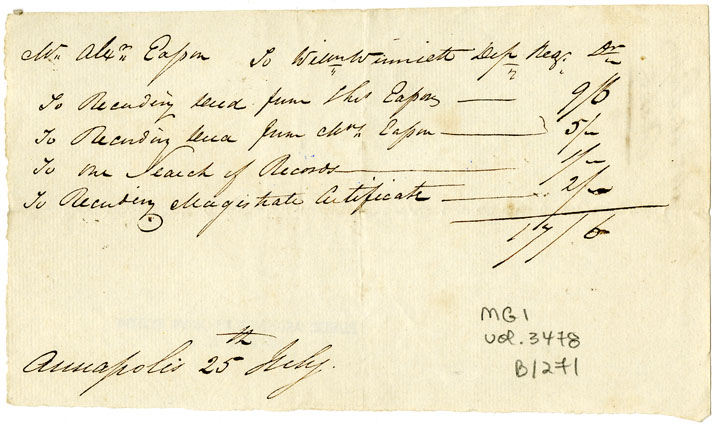 Mr. Alexr Eason To Willm Winniett Dep Regr Dr
To Recording deed from Thos Eason — 9/6
To Recording deed from Mrs Eason — 5/-
To one Search of Records — 1/-
To Recording Magistrate Certificate — 2/-
17/6
Annapolis 25th July.
MG1
vol. 3478
B/271